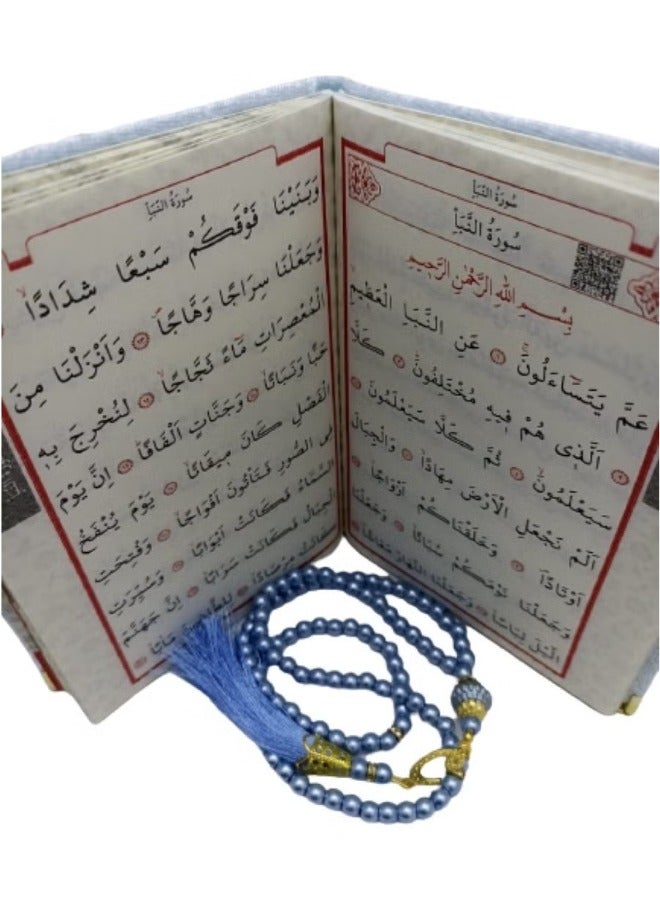 سُورَةُ النَّبَأِ
سُورَةُ النَّبَأِ
بِسْمِ اللهِ الرَّحْمٰنِ الرَّحِيمِ
عَمَّ يَتَسَاءَلُونَ ۚ عَنِ النَّبَأِ الْعَظِيمِ
اَلَّذِى هُمْ فِيهِ مُخْتَلِفُونَ كَلَّا
سَيَعْلَمُونَ ثُمَّ كَلَّا سَيَعْلَمُونَ
اَلَمْ نَجْعَلِ الْاَرْضَ مِهَادًا وَالْجِبَالَ
اَوْتَادًا وَخَلَقْنَاكُمْ اَزْوَاجًا
وَجَعَلْنَا نَوْمَكُمْ سُبَاتًا وَجَعَلْنَا
الَّيْلَ لِبَاسًا وَجَعَلْنَا النَّهَارَ مَعَاشًا
سُورَةُ النَّبَأِ
وَبَنَيْنَا فَوْقَكُمْ سَبْعًا شِدَادًا
وَجَعَلْنَا سِرَاجًا وَهَّاجًا وَاَنْزَلْنَا مِنَ
الْمُعْصِرَاتِ مَاءً ثَجَّاجًا لِنُخْرِجَ بِهِ
حَبًّا وَنَبَاتًا وَجَنَّاتٍ اَلْفَافًا اِنَّ يَوْمَ
الْفَصْلِ كَانَ مِيقَاتًا يَوْمَ يُنْفَخُ
فِى الصُّورِ فَتَأْتُونَ اَفْوَاجًا وَفُتِحَتِ
السَّمَاءُ فَكَانَتْ اَبْوَابًا وَسُيِّرَتِ
الْجِبَالُ فَكَانَتْ سَرَابًا اِنَّ جَهَنَّمَ
كَانَتْ مِرْصَادًا